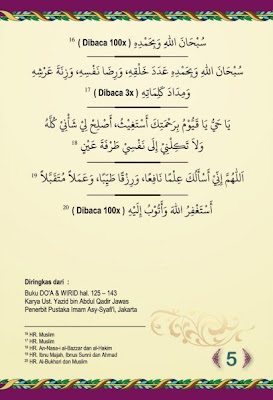 سُبْحَانَ اللهِ وَبِحَمْدِهِ ( Dibaca 100x ) 16
سُبْحَانَ اللهِ وَبِحَمْدِهِ عَدَدَ خَلْقِهِ، وَرِضَا نَفْسِهِ، وَزِنَةَ عَرْشِهِ
وَمِدَادَ كَلِمَاتِهِ ( Dibaca 3x ) 17
يَا حَيُّ يَا قَيُّوْمُ بِرَحْمَتِكَ أَسْتَغِيْثُ، أَصْلِحْ لِيْ شَأْنِيْ كُلَّهُ
وَلَا تَكِلْنِيْ إِلَى نَفْسِيْ طَرْفَةَ عَيْنٍ 18
اَللَّهُمَّ إِنِّيْ أَسْأَلُكَ عِلْمًا نَافِعًا، وَرِزْقًا طَيِّبًا، وَعَمَلًا مُتَقَبَّلًا 19
أَسْتَغْفِرُ اللهَ وَأَتُوْبُ إِلَيْهِ ( Dibaca 100x ) 20
Diringkas dari :
Buku DO'A & WIRID hal. 125 – 143
Karya Ust. Yazid bin Abdul Qadir Jawas
Penerbit Pustaka Imam Asy-Syafi'i, Jakarta
16 HR. Muslim
17 HR. Muslim
18 HR. An-Nasa-i al-Bazzar dan al-Hakim
19 HR. Ibnu Majah, Ibnus Sunni dan Ahmad
20 HR. Al-Bukhari dan Muslim
5